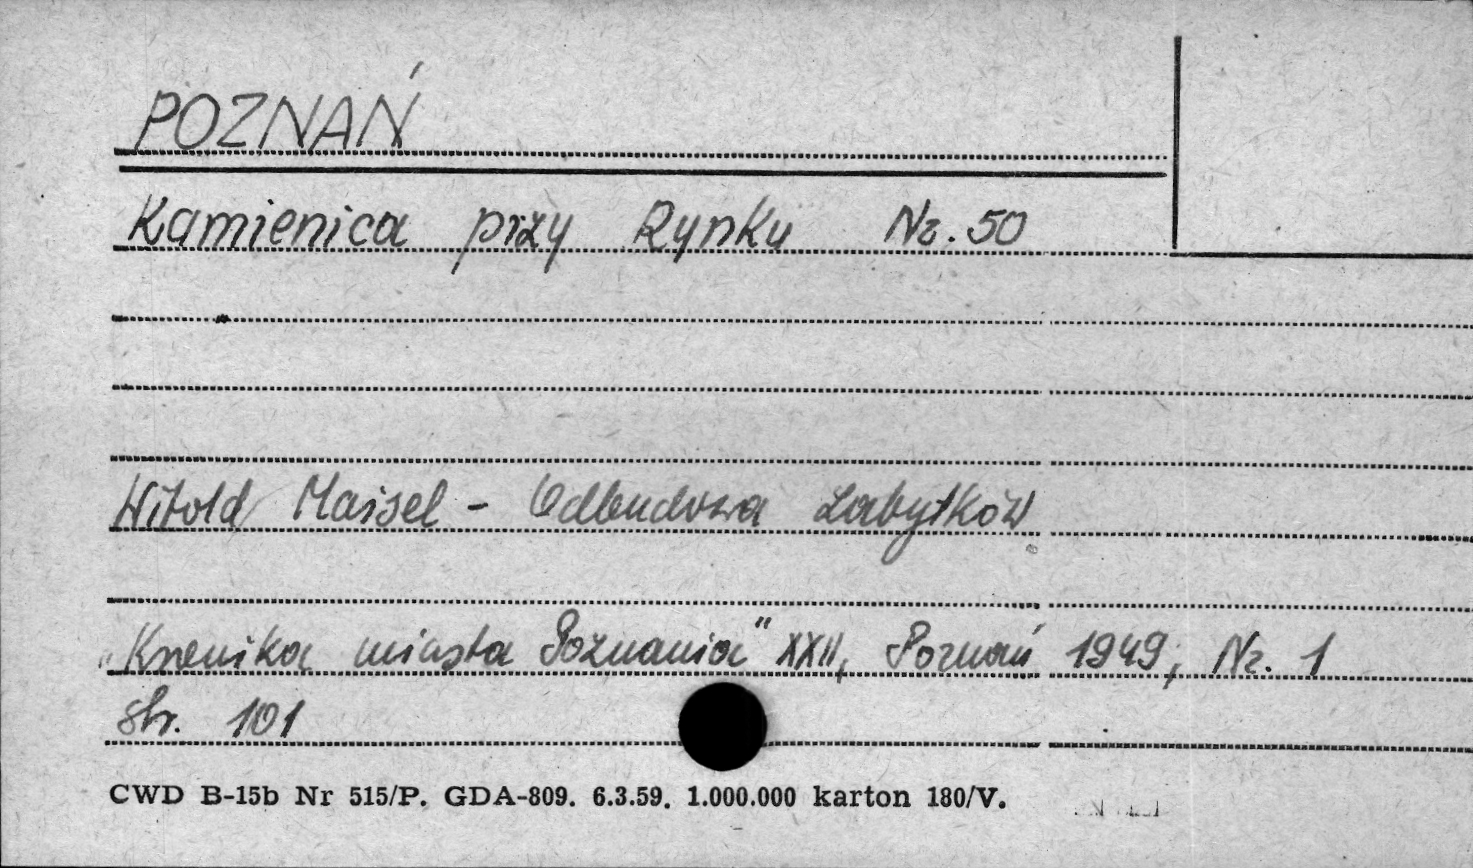 POZNAŃ
Kamienica przy Rynku Nr. 50
Witold Maisel - Odbudowa zabytków
"Kronika miasta Poznania" XXII, Poznań 1949, Nr. 1
str. 101
CWD B-15b Nr 515/P. GDA-809. 6.3.59. 1.000.000 karton 180/V.